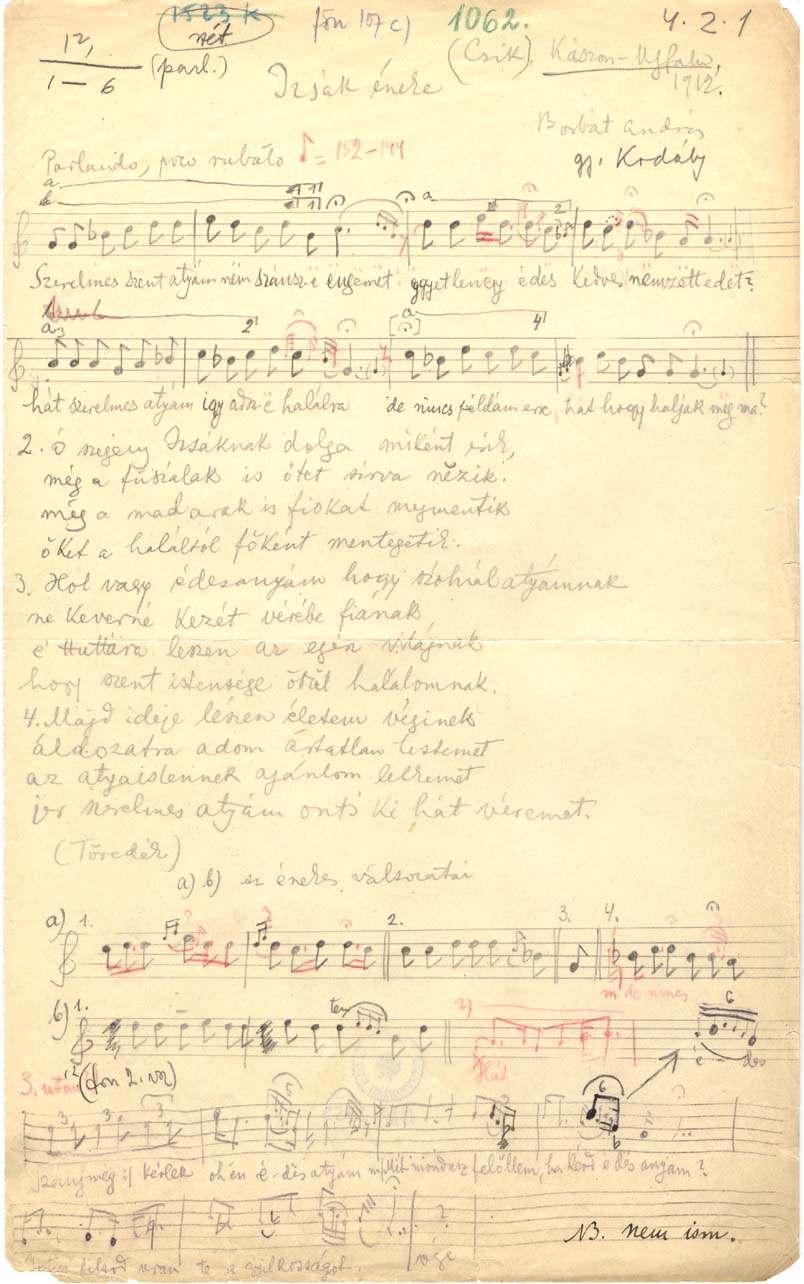 1523 K
szét.
fon 107 c)
1062.
4.2.1
12,
1–6
(parl.)
(Csik), Kászon-Ujfalu,
1912.
Izsák éneke
Borbát András
Parlando, poco rubato ♪ = 152–144
gj. Kodály
a
b
a
2
Szerelmes szent atyám nëm szánsz-ë engëmët ëggyetlenëgy édës kedves nëmzöttedët?
a
3
2
a
4
hát szerelmes atyám így adsz-ë halálra de nincs példám erre, hát hogy haljak mëg ma?
2. ó szegény Izsáknak dolga miként
még a fűszálak is őtet sírva nézik
még a madarak is fiokat megmentik
őket a haláltól főként mentegetik.
3. Hol vagy édesanyám hogy szólnál atyámnak
ne keverné kezét vérébe fiának
é Huttára leszen az egész világnak
hogy szent istensége örül halálomnak.
4. Majd ideje lészen életem véginek
áldozatra adom ártatlan testemet
az atyaistennek ajánlom lelkemet
jer szerelmes atyám onts ki hát véremet.
(Töredék)
a) b) az énekes változatai
a) 1.
2.
3.
4.
de nincs
b) 1.
ten
2)
Hát
6
é – des
3. után
(fon 2. vsz)
3
3
3
3
6
b
szánj meg :/ kérlek oh én é-dës atyám Mit mondasz felőllem, ha kérd édës anyám?
te a gyilkosságot.
vége
?
NB. nem ism.